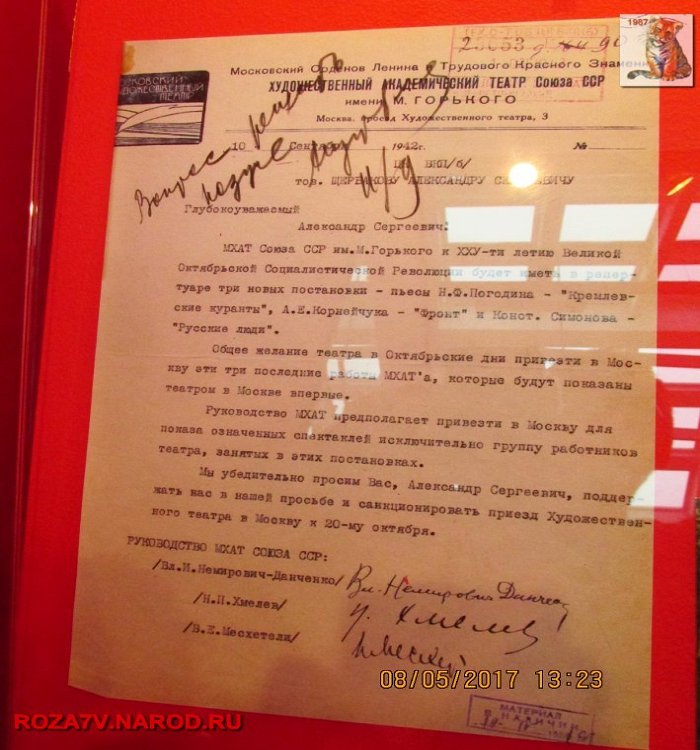 1987
25053
Московский Орденов Ленина и Трудового Красного Знамени
ХУДОЖЕСТВЕННЫЙ АКАДЕМИЧЕСКИЙ ТЕАТР Союза ССР
имени М. ГОРЬКОГО
Москва, проезд Художественного театра, 3
10 Сентября 1942г. №
ЦК ВКП/б/
тов. ЩЕРБАКОВУ АЛЕКСАНДРУ СЕРГЕЕВИЧУ
Вопрос решить
позже
Глубокоуважаемый
Александр Сергеевич!
МХАТ Союза ССР им.М.Горького к ХХУ-ти летию Великой
Октябрьской Социалистической Революции будет иметь в репер-
туаре три новых постановки - пьесы Н.Ф.Погодина - "Кремлев-
ские куранты", А.Е.Корнейчука - "Фронт" и Конст. Симонова -
"Русские люди".
Общее желание театра в Октябрьские дни привезти в Мос-
кву эти три последние работы МХАТ'а, которые будут показаны
театром в Москве впервые.
Руководство МХАТ предполагает привезти в Москву для
показа означенных спектаклей исключительно группу работников
театра, занятых в этих постановках.
Мы убедительно просим Вас, Александр Сергеевич, поддер-
жать нас в нашей просьбе и санкционировать приезд Художествен-
ного театра в Москву к 20-му октября.
РУКОВОДСТВО МХАТ СОЮЗА ССР:
/Вл.И.Немирович-Данченко/ Вл. Немирович Данченко
/Н.П.Хмелев/ Н. Хмелев
/В.Е.Месхетели/
08/05/2017 13:23
МАТЕРИАЛ
В НАЛИЧИИ
ROZA7V.NAROD.RU